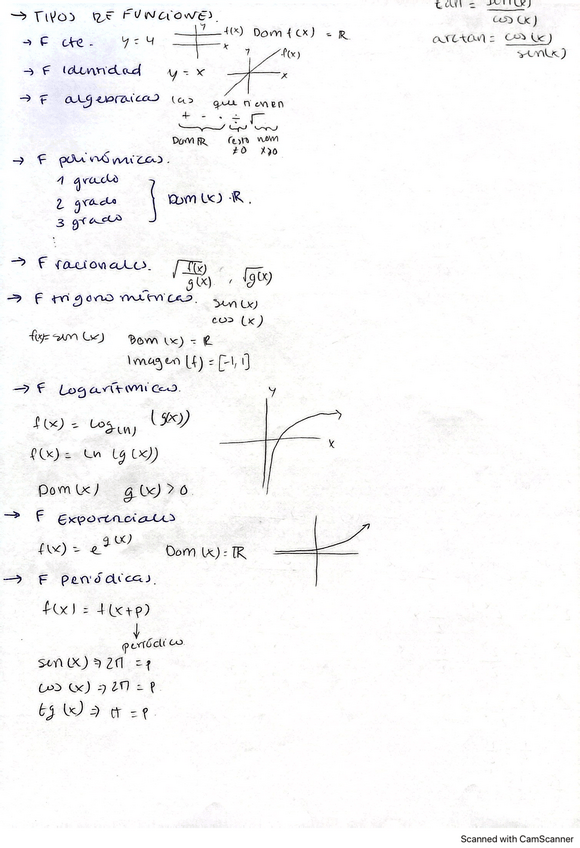 → TIPOS DE FUNCIONES.
tan = sen(x)/cos(x)
→ F cte. y = 4 y f(x) x Dom f(x) = ℝ
arctan = cos(x)/sen(x)
→ F Identidad y = x y f(x) x
→ F algebraicas las que tienen
+ - · ÷ √
Dom ℝ resto ≠0 x≥0
→ F polinómicas.
1 grado
2 grado
3 grado
⋮
} Dom(x) = ℝ.
→ F racionales. √f(x)/g(x) , √g(x)
→ F trigonométricas. sen(x)
cos(x)
f(x)= sen(x) Dom(x) = ℝ
Imagen(f) = [-1,1]
→ F Logarítmicas.
f(x) = log(n) (g(x))
f(x) = ln (g(x))
y
x
Dom(x) g(x) > 0
→ F Exponenciales
f(x) = e^g(x) Dom(x) = ℝ
→ F Periódicas.
f(x) = f(x+p)
↓
periódico
sen(x) ⇒ 2π = p
cos(x) ⇒ 2π = p.
tg(x) ⇒ π = p.
Scanned with CamScanner